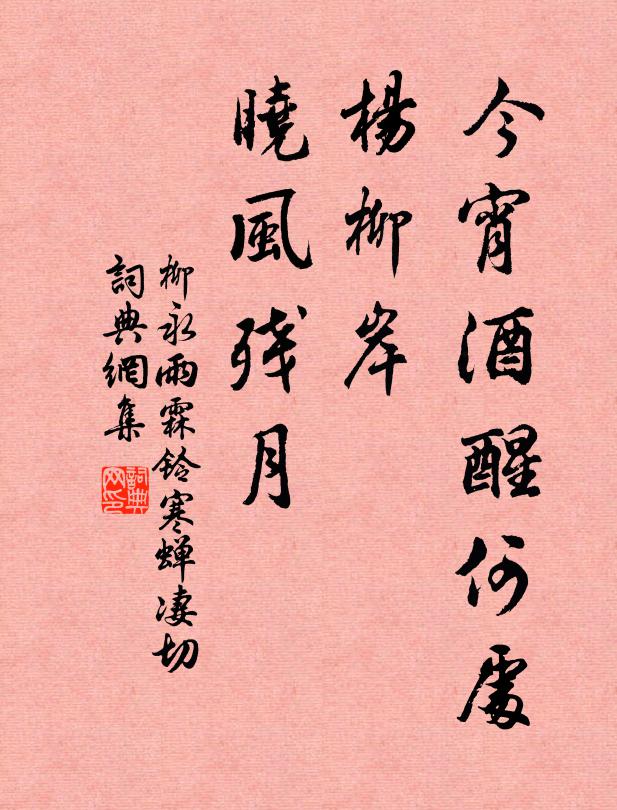 今宵酒醒何處
楊柳岸
曉風残月
柳永雨霖鈴寒蝉凄切
詞典網集
詞典
网印